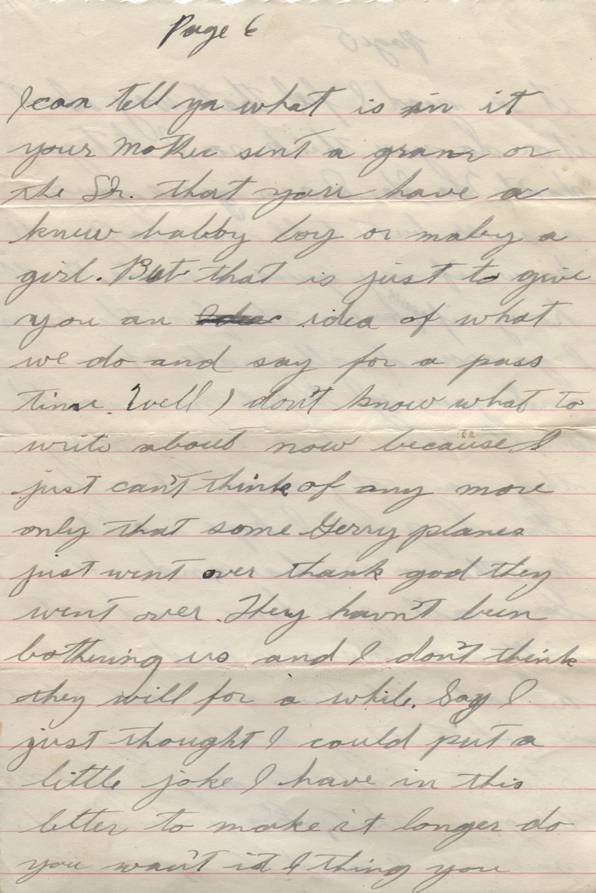 Page 6
I can tell ya what is in it
your mother sent a gram or
the Sr. that your have a
knew babby boy or maby a
girl. But that is just to give
you an idea of what
we do and say for a pass
time. Well I don't know what to
write about now because I
just can't think of any more
only that some Gerry planes
just went over thank god they
went over. They havn't been
bothering us and I don't think
they will for a while. Say I
just thought I could put a
little joke I have in this
letter to make it longer do
you wan't it I thing you